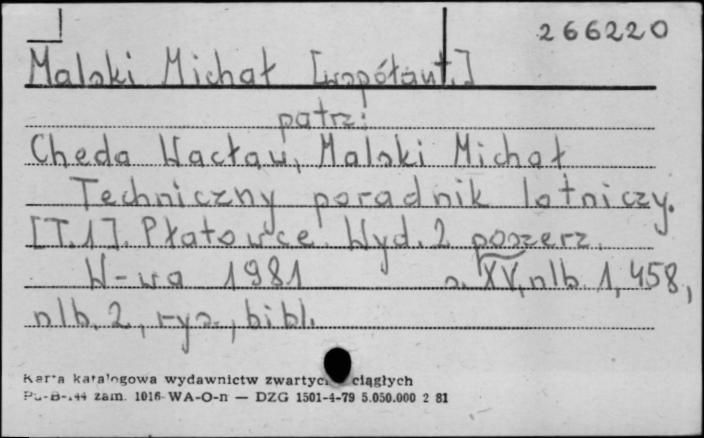 266220
Malski Michał [współaut.]
patrz:
Cheda Wacław, Malski Michał
Techniczny poradnik lotniczy.
[T.1]. Płatowce. Wyd. 2 poszerz.
W-wa 1981 s. XV, nlb. 1, 458,
nlb. 2, rys., bibl.
Karta katalogowa wydawnictw zwartych ciągłych
zam. 1016 WA-O-n — DZG 1501-4-79 5.050.000 2 81